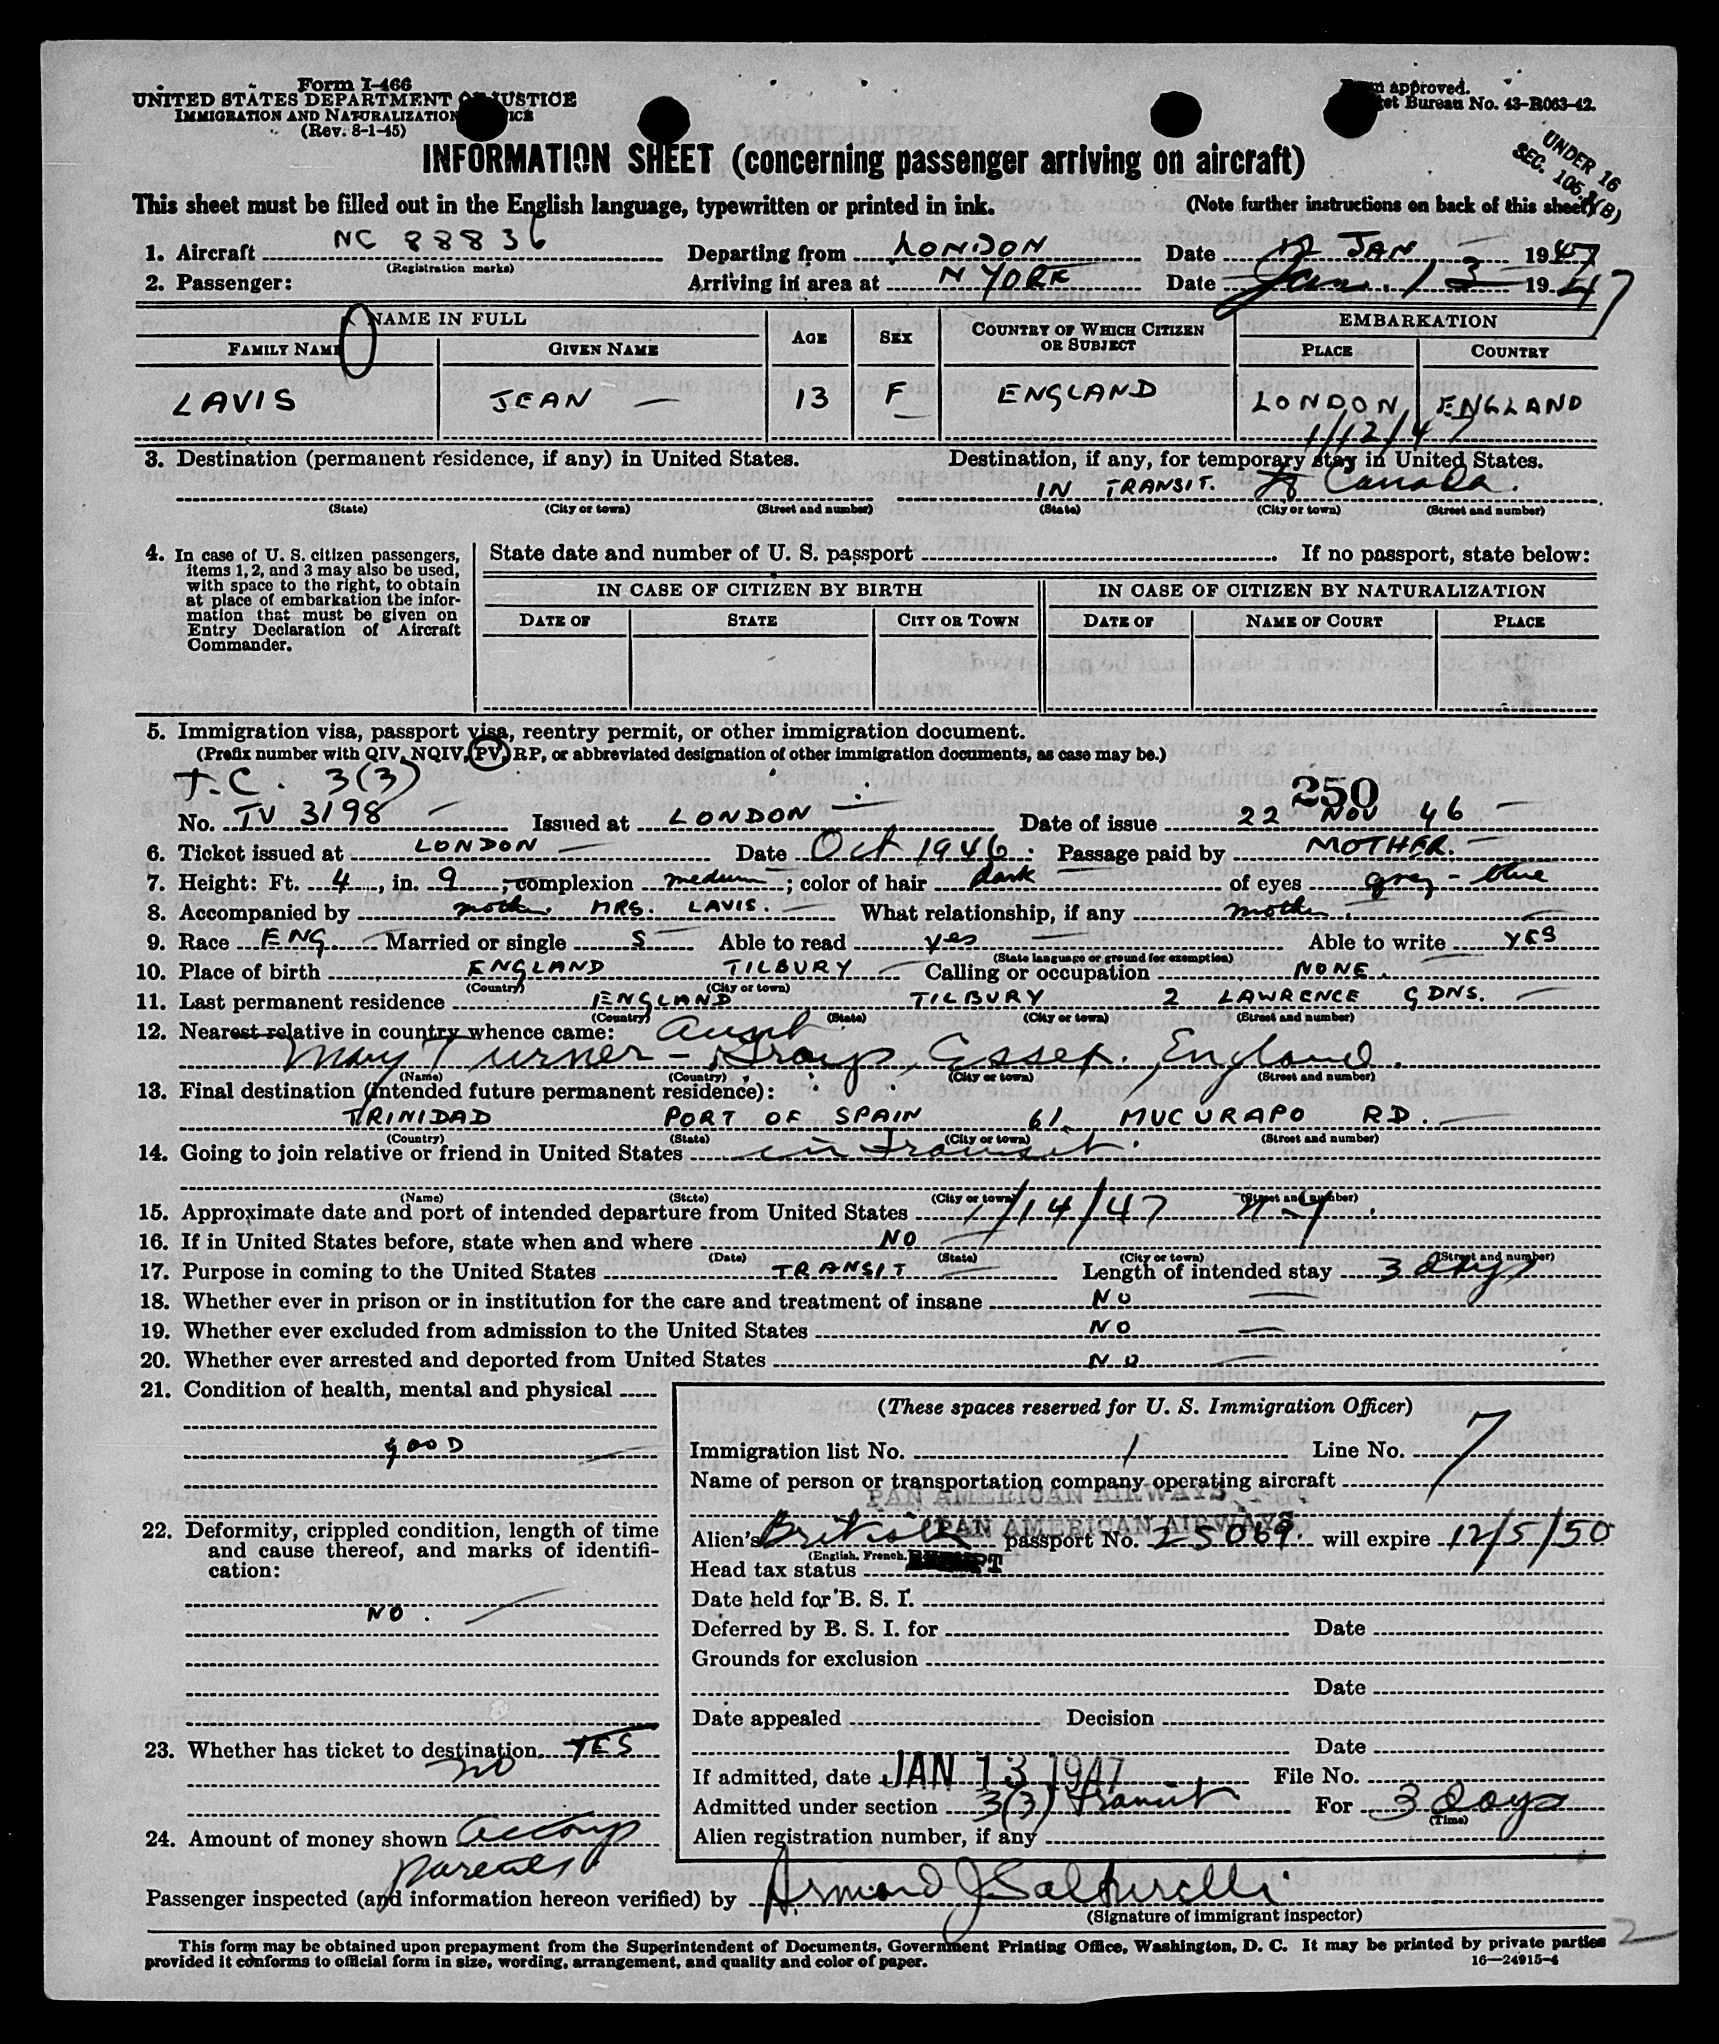 Form I-466
UNITED STATES DEPARTMENT OF JUSTICE
IMMIGRATION AND NATURALIZATION SERVICE
(Rev. 8-1-45)
Form approved.
Budget Bureau No. 43-R063-42.
UNDER 16
SEC. 105.3(B)
INFORMATION SHEET (concerning passenger arriving on aircraft)
This sheet must be filled out in the English language, typewritten or printed in ink. (Note further instructions on back of this sheet)
1. Aircraft NC 88836 Departing from LONDON Date 12 JAN 1947
(Registration marks)
2. Passenger: Arriving in area at N YORK Date Jan. 13 1947
NAME IN FULL AGE SEX COUNTRY OF WHICH CITIZEN OR SUBJECT EMBARKATION
FAMILY NAME GIVEN NAME PLACE COUNTRY
LAVIS JEAN — 13 F ENGLAND LONDON, ENGLAND
1/12/47
3. Destination (permanent residence, if any) in United States. Destination, if any, for temporary stay in United States.
IN TRANSIT. to Canada.
(State) (City or town) (Street and number) (State) (City or town) (Street and number)
4. In case of U. S. citizen passengers, items 1, 2, and 3 may also be used, with space to the right, to obtain at place of embarkation the information that must be given on Entry Declaration of Aircraft Commander.
State date and number of U. S. passport If no passport, state below:
IN CASE OF CITIZEN BY BIRTH IN CASE OF CITIZEN BY NATURALIZATION
DATE OF STATE CITY OR TOWN DATE OF NAME OF COURT PLACE
5. Immigration visa, passport visa, reentry permit, or other immigration document.
(Prefix number with QIV, NQIV, PV, RP, or abbreviated designation of other immigration documents, as case may be.)
T.C. 3(3)
250
No. TV 3198 Issued at LONDON Date of issue 22 NOV 46
6. Ticket issued at LONDON Date Oct 1946. Passage paid by MOTHER.
7. Height: Ft. 4, in. 9; complexion medium; color of hair dark of eyes grey - blue
8. Accompanied by mother. MRS. LAVIS. What relationship, if any mother.
9. Race ENG Married or single S Able to read yes Able to write YES
(State language or ground for exemption)
10. Place of birth ENGLAND TILBURY Calling or occupation NONE.
(Country) (City or town)
11. Last permanent residence ENGLAND TILBURY 2 LAWRENCE GDNS.
(Country) (State) (City or town) (Street and number)
12. Nearest relative in country whence came: Aunt.
Mary Turner - Grays, Essex, England.
(Name) (Country) (City or town) (Street and number)
13. Final destination (intended future permanent residence):
TRINIDAD PORT OF SPAIN 61, MUCURAPO RD.
(Country) (State) (City or town) (Street and number)
14. Going to join relative or friend in United States in transit.
(Name) (State) (City or town) (Street and number)
15. Approximate date and port of intended departure from United States 1/14/47 N-Y.
16. If in United States before, state when and where NO
(Date) (State) (City or town) (Street and number)
17. Purpose in coming to the United States TRANSIT Length of intended stay 3 days
18. Whether ever in prison or in institution for the care and treatment of insane NO
19. Whether ever excluded from admission to the United States NO
20. Whether ever arrested and deported from United States NO
21. Condition of health, mental and physical
GOOD
22. Deformity, crippled condition, length of time and cause thereof, and marks of identification:
NO.
23. Whether has ticket to destination YES
no
24. Amount of money shown accomp
parents
(These spaces reserved for U. S. Immigration Officer)
Immigration list No. 1 Line No. 7
Name of person or transportation company operating aircraft
PAN AMERICAN AIRWAYS
PAN AMERICAN AIRWAYS
Alien's British passport No. 25069. will expire 12/5/50
(English, French,
Head tax status
Date held for B. S. I.
Deferred by B. S. I. for Date
Grounds for exclusion
Date
Date appealed Decision
Date
If admitted, date JAN 13 1947 File No.
Admitted under section 3(3) Transit For 3 Days
(Time)
Alien registration number, if any
Passenger inspected (and information hereon verified) by Armand J Salturelli
(Signature of immigrant inspector)
2
This form may be obtained upon prepayment from the Superintendent of Documents, Government Printing Office, Washington, D. C. It may be printed by private parties
provided it conforms to official form in size, wording, arrangement, and quality and color of paper.
16—24915-4